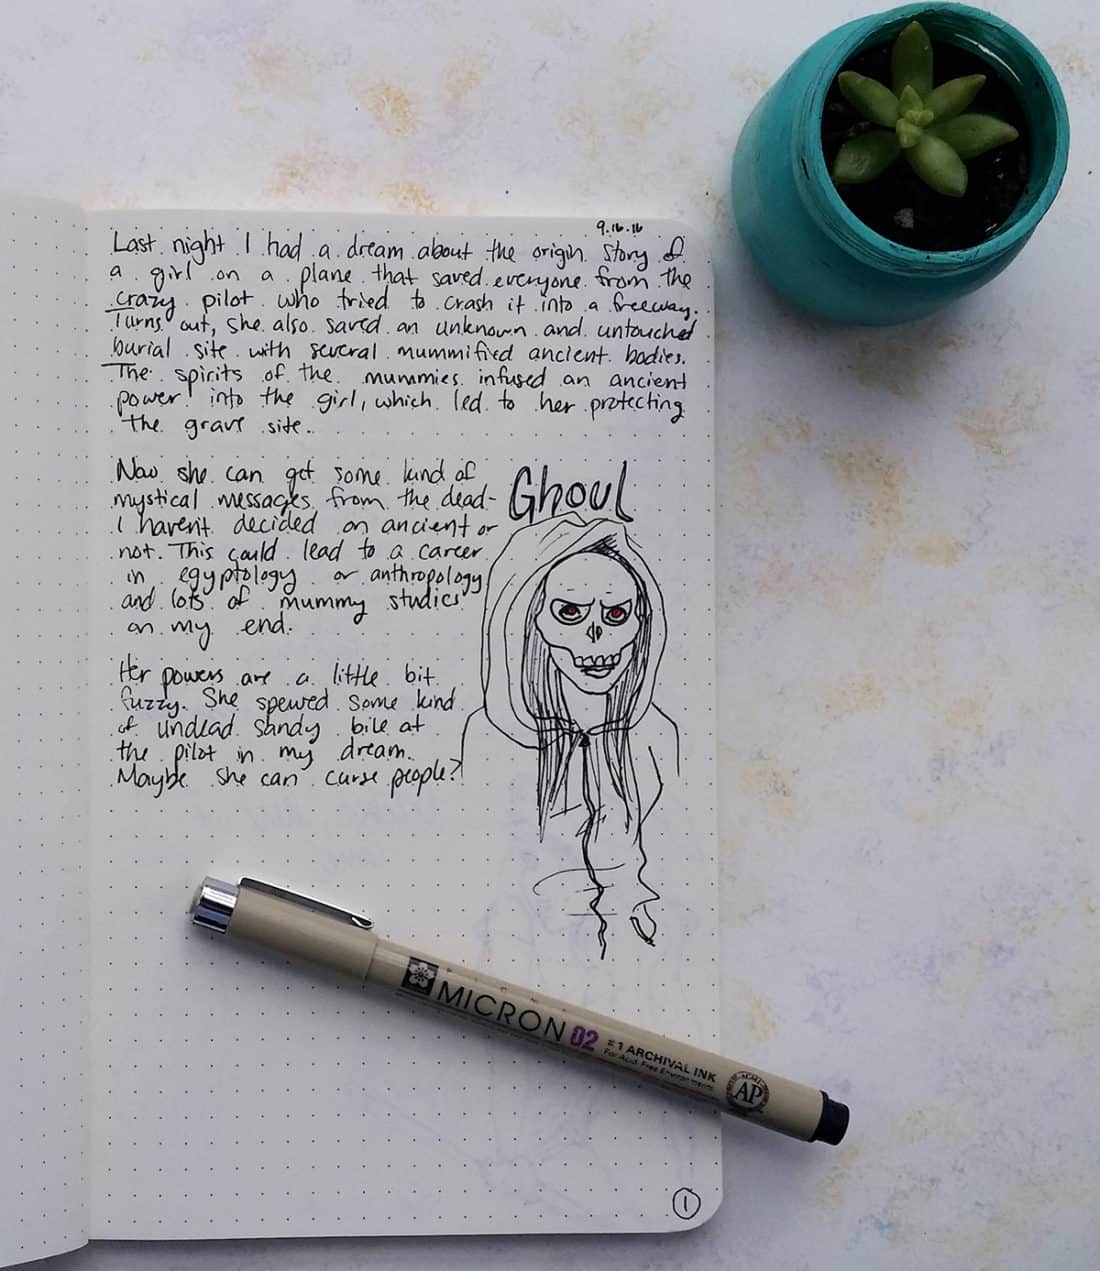 9.16.16
Last night I had a dream about the origin story of
a girl on a plane that saved everyone from the
crazy pilot who tried to crash it into a freeway.
Turns out, she also saved an unknown and untouched
burial site with several mummified ancient bodies.
The spirits of the mummies infused an ancient
power into the girl, which led to her protecting
the grave site.
Now she can get some kind of
mystical messages from the dead-
I havent decided on ancient or
not. This could lead to a career
in egyptology or anthropology
and lots of mummy studies
on my end.
Her powers are a little bit
fuzzy. She spewed some kind
of undead sandy bile at
the pilot in my dream.
Maybe she can curse people?
Ghoul
MICRON 02
#1 ARCHIVAL INK
For Acid Free Environments
ACMI
AP
1